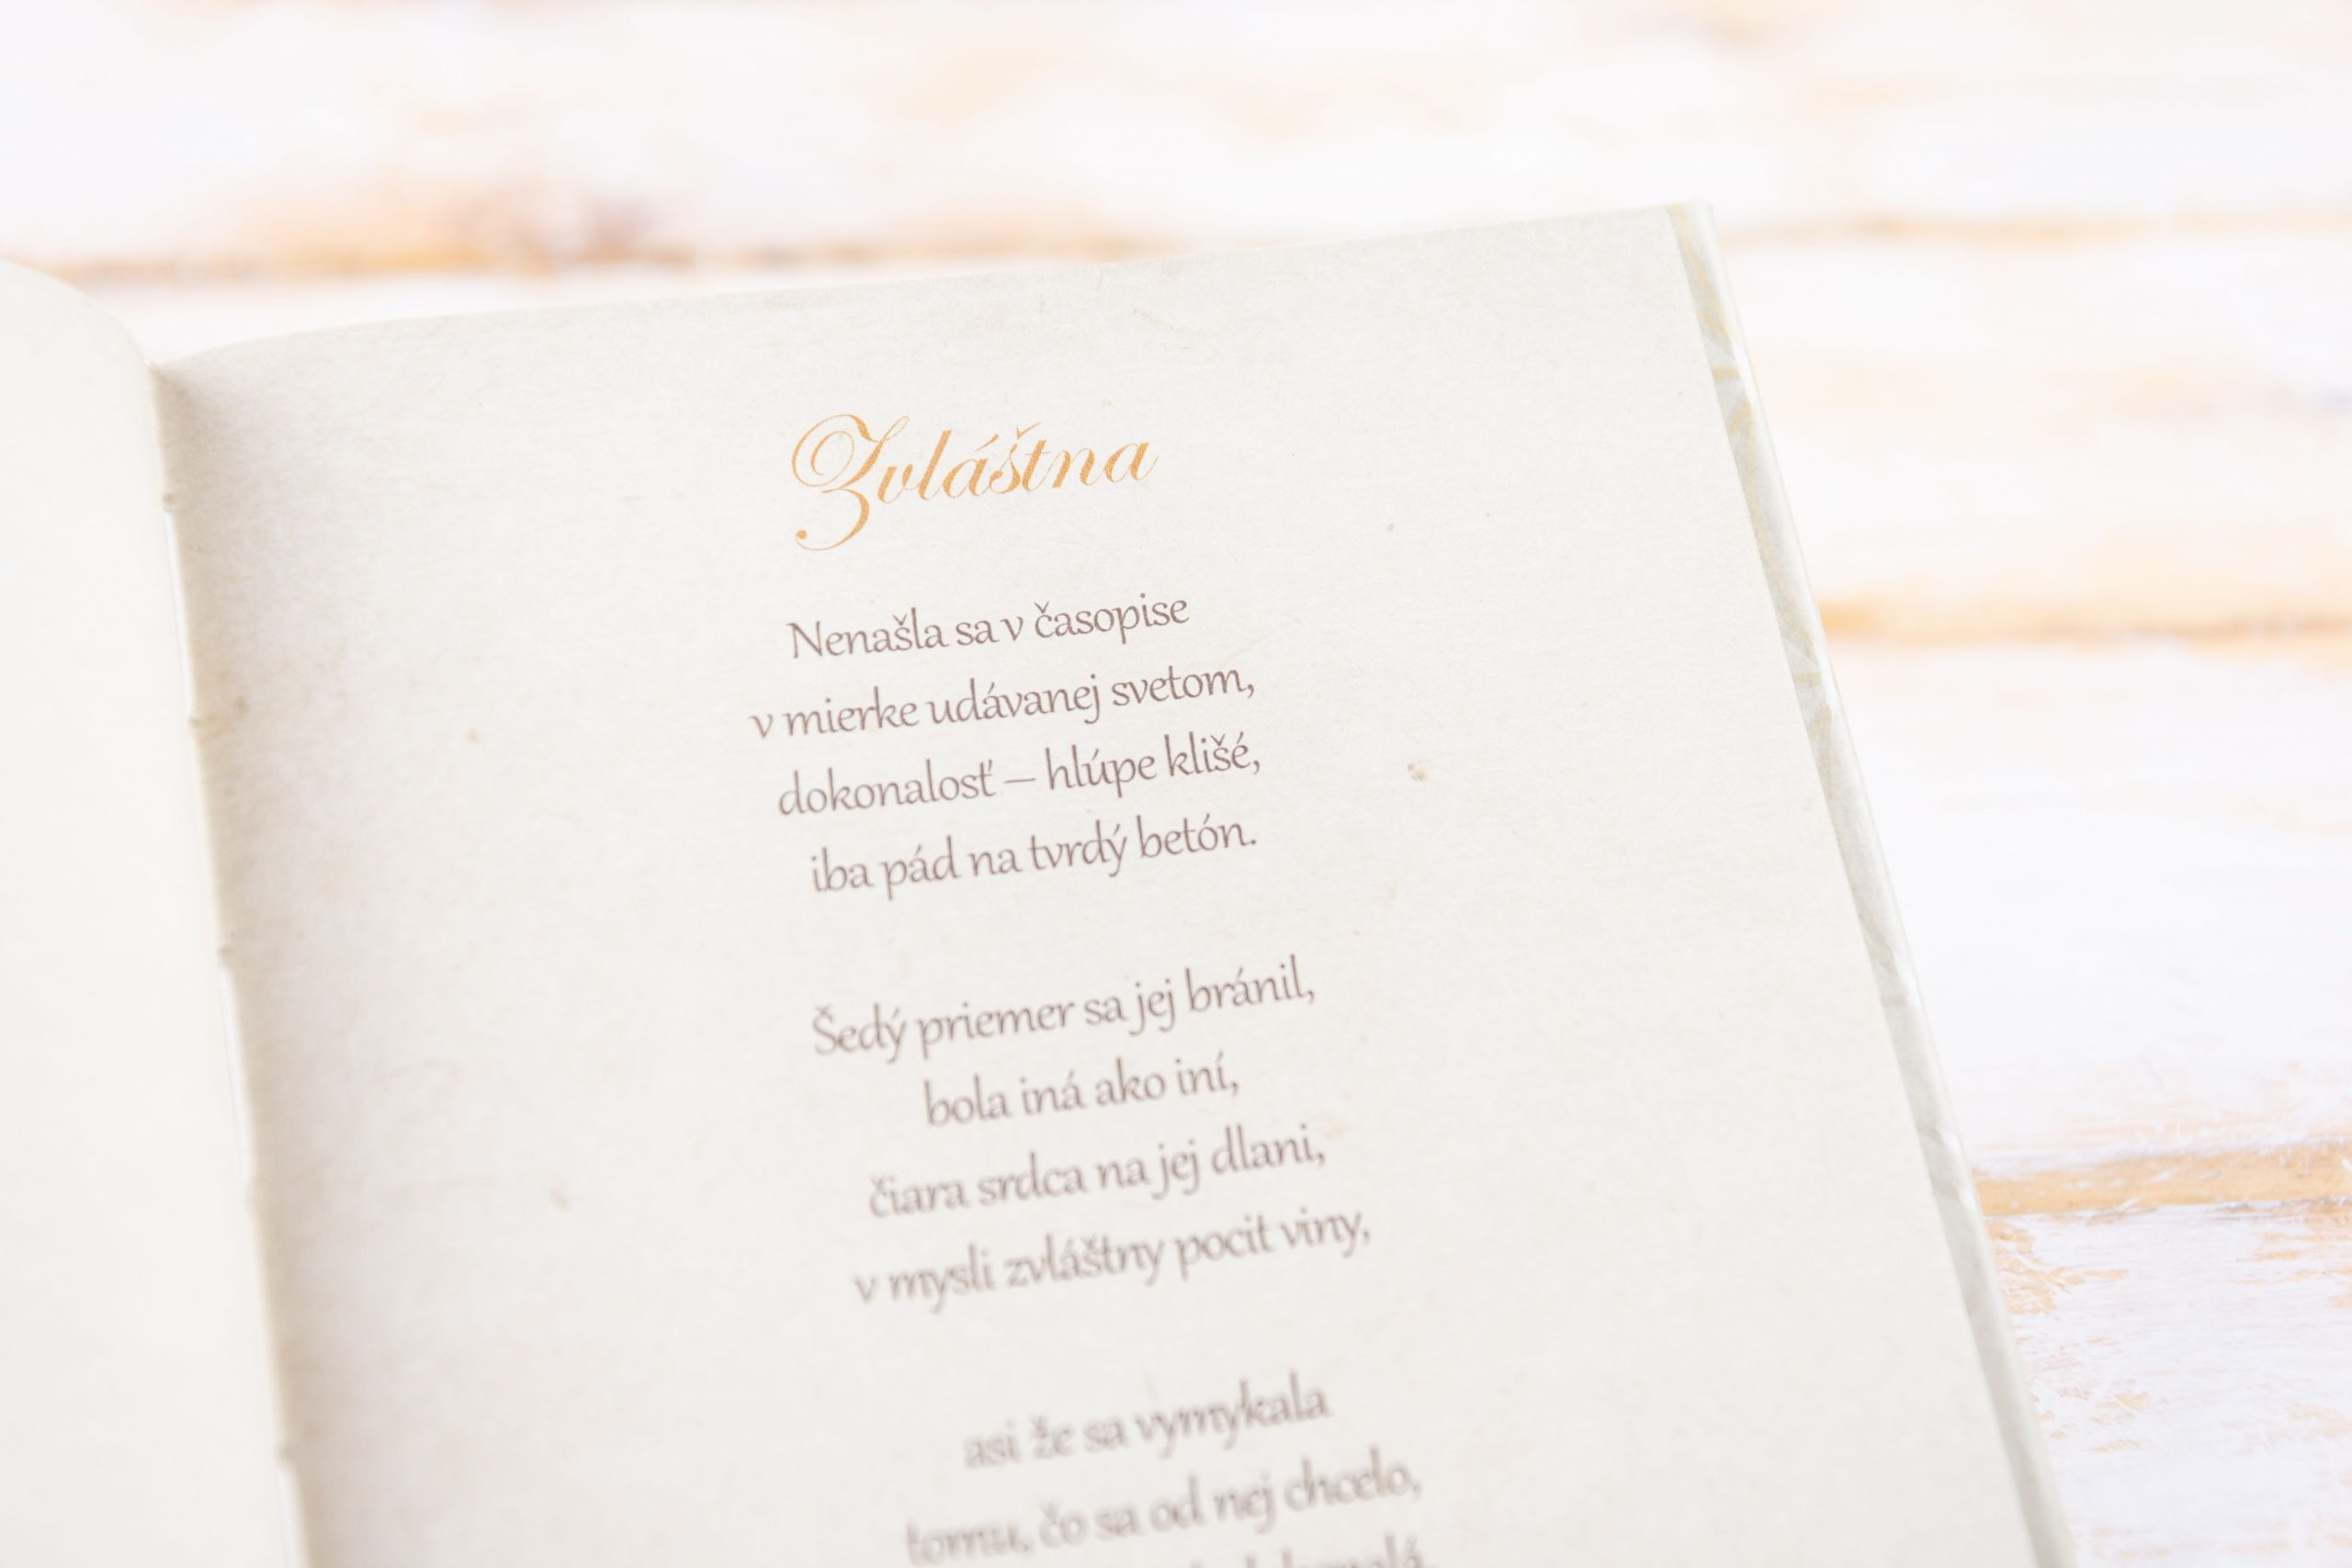 Zvláštna
Nenašla sa v časopise
v mierke udávanej svetom,
dokonalosť – hlúpe klišé,
iba pád na tvrdý betón.
Šedý priemer sa jej bránil,
bola iná ako iní,
čiara srdca na jej dlani,
v mysli zvláštny pocit viny,
asi že sa vymykala
tomu, čo sa od nej chcelo,